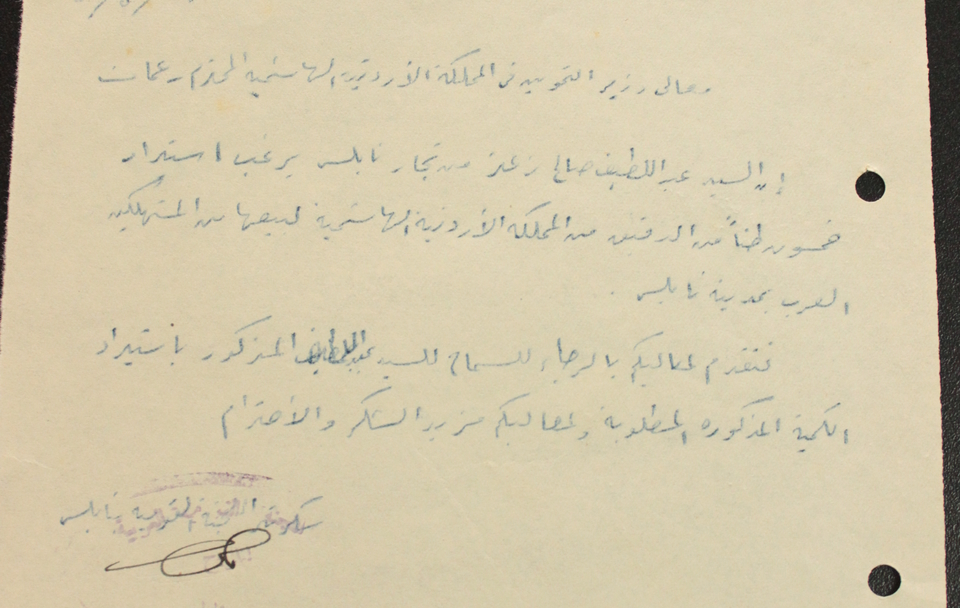 معالي وزير التموين في المملكة الأردنية الهاشمية المحترم عمان
إن السيد عبد اللطيف صالح زعتر من تجار نابلس يرغب استيراد
خمسون طناً من الدقيق من المملكة الأردنية الهاشمية لبيعها من المستهلكين
العرب بمدينة نابلس.
نتقدم لمعاليكم بالرجاء للسماح للسيد عبد اللطيف المذكور باستيراد
الكمية المذكوره المطلوبة ولمعاليكم مزيد الشكر والأحترام
سكرتير اللجنة القومية بنابلس